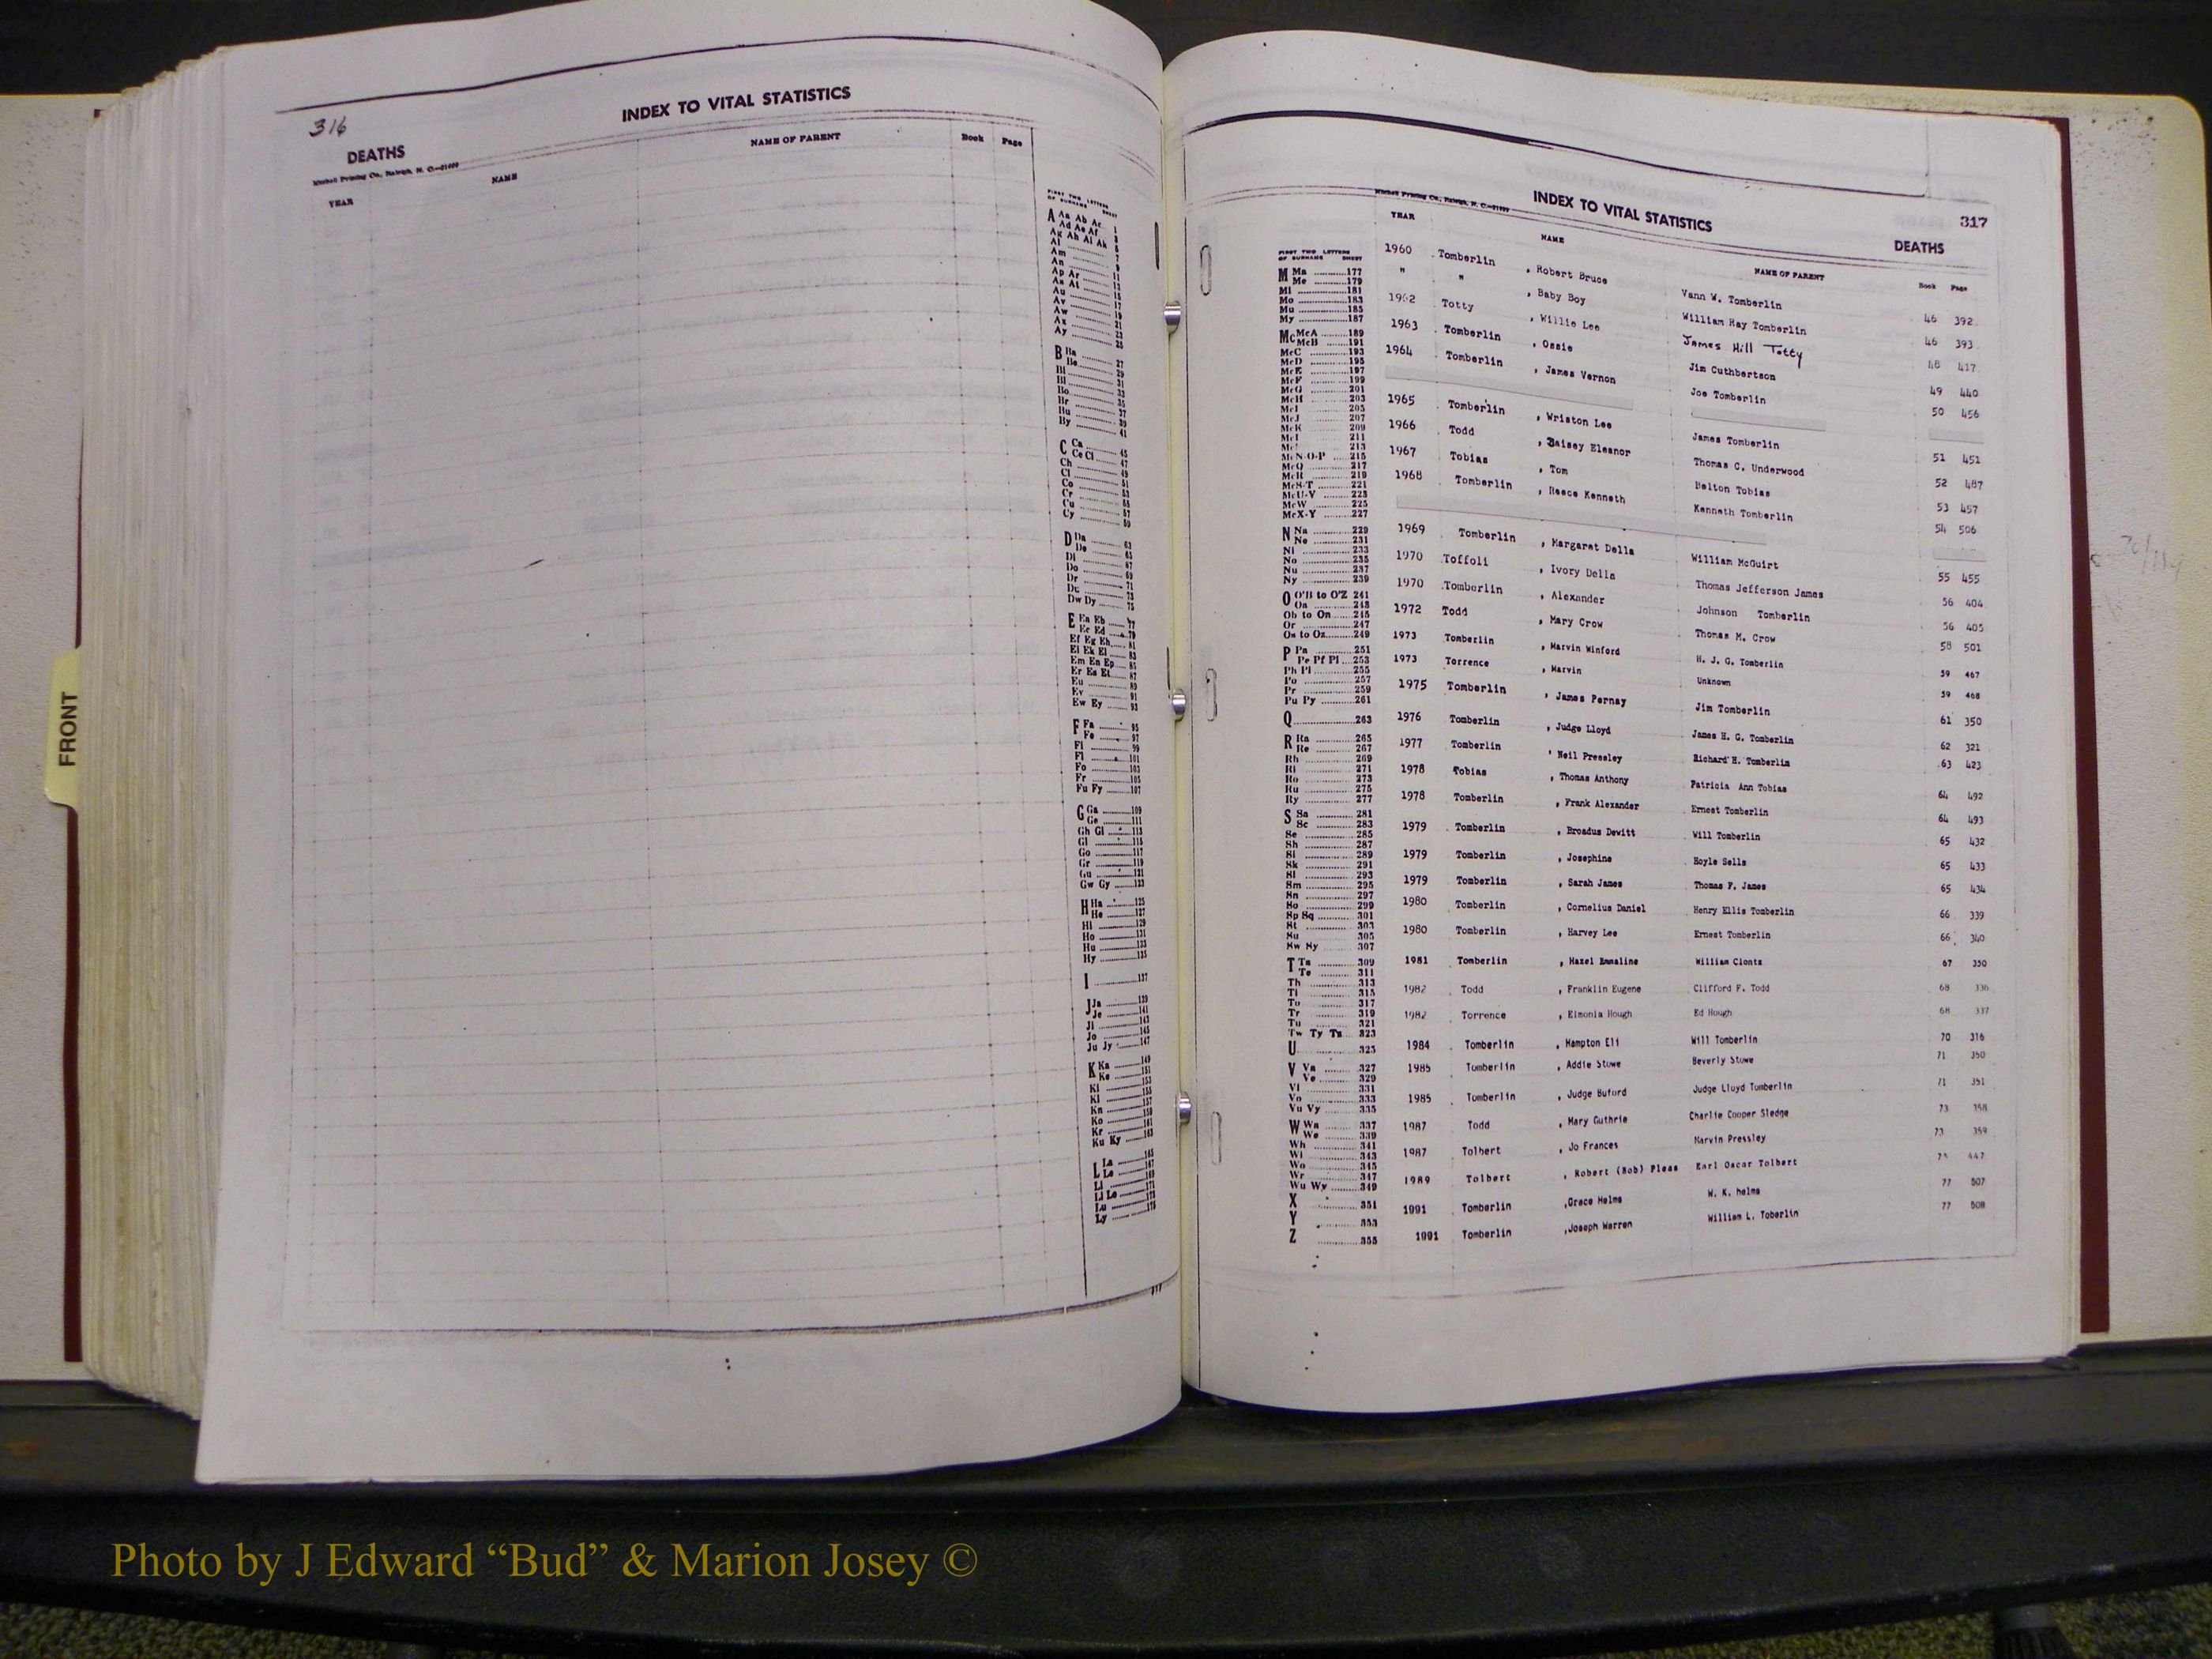 316
INDEX TO VITAL STATISTICS
DEATHS
Mitchell Printing Co., Raleigh, N. C.—21099
YEAR NAME NAME OF PARENT Book Page
FIRST TWO LETTERS OF SURNAME SHEET
A Aa Ab Ac 1
Ad Ae Af
Ag Ah Ai Ak
Al
Am
An
Ap Ar
As At
Au
Av 17
Aw 19
Ax 21
Ay
B Ba 27
Be 29
Bi 31
Bl 33
Bo 35
Br 37
Bu 39
By 41
C Ca 45
Ce Ci 47
Ch 49
Cl 51
Co 53
Cr 55
Cu 57
Cy 59
D Da 63
De 65
Di 67
Do 69
Dr 71
Du 73
Dw Dy 75
E Ea Eb 77
Ec Ed 79
Ef Eg Eh 81
Ei Ek El 83
Em En Ep 85
Er Es Et 87
Eu 89
Ev 91
Ew Ey 93
F Fa 95
Fe 97
Fi 99
Fl 101
Fo 103
Fr 105
Fu Fy 107
G Ga 109
Ge 111
Gh Gi 113
Gl 115
Go 117
Gr 119
Gu 121
Gw Gy 123
H Ha 125
He 127
Hi 129
Ho 131
Hu 133
Hy 135
I 137
J Ja 139
Je 141
Ji 143
Jo 145
Ju Jy 147
K Ka 149
Ke 151
Ki 153
Kl 155
Kn 157
Ko 159
Kr 161
Ku Ky 163
L La 165
Le 167
Li 169
Ll Lo 171
Lu 173
Ly 175
FRONT
Mitchell Printing Co., Raleigh, N. C.—21099
INDEX TO VITAL STATISTICS
317
DEATHS
YEAR NAME NAME OF PARENT Book Page
FIRST TWO LETTERS OF SURNAME SHEET
M Ma 177
Me 179
Mi 181
Mo 183
Mu 185
My 187
Mc McA 189
McB 191
McC 193
McD 195
McE 197
McF 199
McG 201
McH 203
McI 205
McJ 207
McK 209
McL 211
McM 213
McN-O-P 215
McQ 217
McR 219
McS-T 221
McU-V 223
McW 225
McX-Y 227
N Na 229
Ne 231
Ni 233
No 235
Nu 237
Ny 239
O O'B to O'Z 241
Oa 243
Ob to On 245
Or 247
Os to Oz 249
P Pa 251
Pe Pf Pi 253
Ph Pl 255
Po 257
Pr 259
Pu Py 261
Q 263
R Ra 265
Re 267
Rh 269
Ri 271
Ro 273
Ru 275
Ry 277
S Sa 281
Sc 283
Se 285
Sh 287
Si 289
Sk 291
Sl 293
Sm 295
Sn 297
So 299
Sp Sq 301
St 303
Su 305
Sw Sy 307
T Ta 309
Te 311
Th 313
Ti 315
To 317
Tr 319
Tu 321
Tw Ty Tz 323
U 325
V Va 327
Ve 329
Vi 331
Vo 333
Vu Vy 335
W Wa 337
We 339
Wh 341
Wi 343
Wo 345
Wr 347
Wu Wy 349
X 351
Y 353
Z 355
1960 Tomberlin , Robert Bruce Vann W. Tomberlin 46 392
" " , Baby Boy William Ray Tomberlin 46 393
1962 Totty , Willie Lee James Hill Totty 48 417
1963 Tomberlin , Ossie Jim Cuthbertson 49 440
1964 Tomberlin , James Vernon Joe Tomberlin 50 456
1965 Tomberlin , Wriston Lee James Tomberlin 51 451
1966 Todd , Daisey Eleanor Thomas C. Underwood 52 487
1967 Tobias , Tom Belton Tobias 53 457
1968 Tomberlin , Reece Kenneth Kenneth Tomberlin 54 506
1969 Tomberlin , Margaret Della William McGuirt 55 455
1970 Toffoli , Ivory Della Thomas Jefferson James 56 404
1970 Tomberlin , Alexander Johnson Tomberlin 56 405
1972 Todd , Mary Crow Thomas M. Crow 58 501
1973 Tomberlin , Marvin Winford H. J. G. Tomberlin 59 467
1973 Torrence , Marvin Unknown 59 468
1975 Tomberlin , James Pernay Jim Tomberlin 61 350
1976 Tomberlin , Judge Lloyd James H. G. Tomberlin 62 321
1977 Tomberlin , Neil Pressley Richard H. Tomberlin 63 423
1978 Tobias , Thomas Anthony Patricia Ann Tobias 64 492
1978 Tomberlin , Frank Alexander Ernest Tomberlin 64 493
1979 Tomberlin , Broadus Dewitt Will Tomberlin 65 432
1979 Tomberlin , Josephine Hoyle Sells 65 433
1979 Tomberlin , Sarah James Thomas F. James 65 434
1980 Tomberlin , Cornelius Daniel Henry Ellis Tomberlin 66 339
1980 Tomberlin , Harvey Lee Ernest Tomberlin 66 340
1981 Tomberlin , Hazel Emmaline William Clontz 67 350
1982 Todd , Franklin Eugene Clifford F. Todd 68 336
1982 Torrence , Elmonia Hough Ed Hough 68 337
1984 Tomberlin , Hampton Eli Will Tomberlin 70 316
1985 Tomberlin , Addie Stowe Beverly Stowe 71 350
1985 Tomberlin , Judge Buford Judge Lloyd Tomberlin 71 351
1987 Todd , Mary Guthrie Charlie Cooper Sledge 73 358
1987 Tolbert , Jo Frances Marvin Pressley 73 359
1989 Tolbert , Robert (Bob) Pleas Earl Oscar Tolbert 75 447
1991 Tomberlin ,Grace Helms W. K. helms 77 507
1991 Tomberlin ,Joseph Warren William L. Toberlin 77 508
Photo by J Edward “Bud” & Marion Josey ©